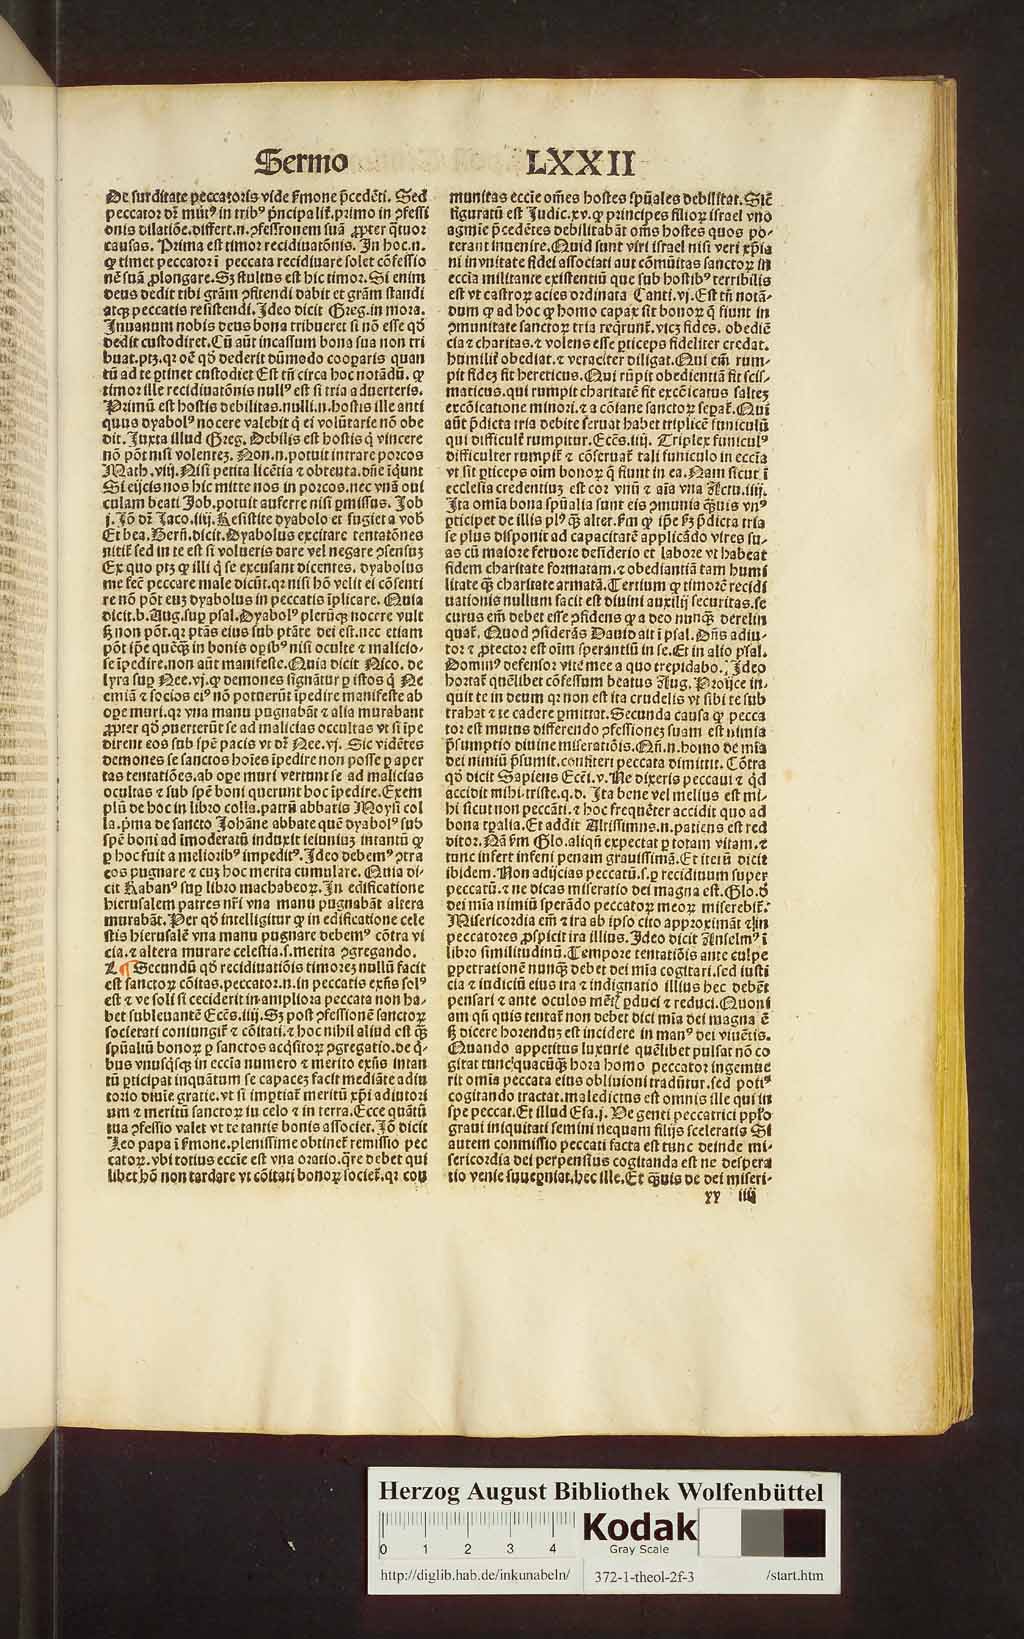 Sermo LXXII
De surditate peccatoris vide ẜmone p̄cedēti. Sed
peccator dr̄ mutꝰ in tribꝰ p̄ncipalit̄. primo in ꝯfessi
onis dilatiōe. differt .n. ꝯfessionem suā ꝓpter q̄tuor
causas. Prima est timor recidiuatōnis. In hoc .n.
ꝙ timet peccator ī peccata recidiuare solet cōfessio
nē suā ꝓlongare. Sꝫ stultus est hic timor. Si enim
deus dedit tibi grām ꝯfitendi dabit et grām standi
atqꝫ peccatis resistendi. Ideo dicit Greg. in mora.
Inuanum nobis deus bona tribueret si nō esse qd̄
dedit custodiret. Cū aūt incassum bona sua non tri
buat. ptꝫ. qr oē qd̄ dederit dūmodo cooparis quan
tū ad te ꝑtinet custodiet Est tn̄ circa hoc notādū. ꝙ
timor ille recidiuatōnis nullꝰ est si tria aduerteris.
Primū est hostis debilitas. nulli .n. hostis ille anti
quus dyabolꝰ nocere valebit q̄ ei volūtarie nō obe
dit. Iuxta illud Greg. Debilis est hostis q̄ vincere
nō pōt nisi volenteꝫ. Non .n. potuit intrare porcos
Math. viij. Nisi petita licētia ⁊ obteuta. dn̄e īqunt
Si eijcis nos hic mitte nos in porcos. nec vnā oui
culam beati Job. potuit auferre nisi ꝑmissus. Job
j. Iō dr̄ Iaco. iiij. Resistite dyabolo et fugiet a vob̄
Et bea. Bern̄. dicit. Dyabolus excitare tentatōnes
nitit̄ sed in te est si volueris dare vel negare ꝯsensuꝫ
Ex quo ptꝫ ꝙ illi q̄ se excusant dicentes. dyabolus
me fec̄ peccare male dicūt. qr nisi hō velit ei cōsenti
re nō pōt euꝫ dyabolus in peccatis īplicare. Quia
dicit .b. Aug. suꝑ psal. Dyabolꝰ plerūqꝫ nocere vult
ẜꝫ non pōt. qr ptās eius sub ptāte dei est. nec etiam
pōt ip̄e quēqꝫ in bonis opibꝰ nisi oculte ⁊ malicio-
se īpedire. non aūt manifeste. Quia dicit Nico. de
lyra suꝑ Nee. vj. ꝙ demones signātur ꝑ istos q̄ Ne
emiā ⁊ socios eiꝰ nō potuerūt īpedire manifeste ab
oꝑe muri. qr vna manu pugnabāt ⁊ alia murabant
ꝓpter qd̄ ꝯuerterūt se ad malicias occultas vt si īpe
dirent eos sub spē pacis vt dr̄ Nee. vj. Sic vidētes
demones se sanctos hoīes īpedire non posse ꝑ aper
tas tentatiōes. ab oꝑe muri vertunt se ad malicias
ocultas ⁊ sub spē boni querunt hoc īpedire. Exem
plū de hoc in libro colla. patrū abbatis Moysi col
la. p̄ma de sancto Johāne abbate quē dyabolꝰ sub
spē boni ad īmoderatū induxit ieiunius intantū ꝙ
ꝑ hoc fuit a melioribꝰ impeditꝰ. Ideo debemꝰ ꝯtra
eos pugnare ⁊ cuꝫ hoc merita cumulare. Quia di-
cit Rabanꝰ suꝑ libro machabeoꝝ. In edificatione
hierusalem patres nr̄i vna manu pugnabāt altera
murabāt. Per qd̄ intelligitur ꝙ in edificatione cele
stis hierusalē vna manu pugnare debemꝰ cōtra vi
cia. ⁊ altera murare celestia. s. merita ꝯgregando.
L ¶ Secundū qd̄ recidiuatiōis timoreꝫ nullū facit
est sanctoꝝ cōitas. peccator .n. in peccatis exn̄s solꝰ
est ⁊ ve soli si ceciderit in ampliora peccata non ha-
bet subleuantē Eccs̄. iiij. Sꝫ post ꝯfessionē sanctoꝝ
societati coniungit̄ ⁊ cōitati. ⁊ hoc nihil aliud est qꝫ
spūaliū bonoꝝ ꝑ sanctos acq̄sitoꝝ ꝯgregatio. de q̄-
bus vnusq̄sqꝫ in eccīa numero ⁊ merito exn̄s intan
tū ꝑticipat inquātum se capaceꝫ facit mediāte adiu
torio diuīe gratie. vt si imꝑtiat̄ meritū xp̄i adiutori
um ⁊ meritū sanctoꝝ in celo ⁊ in terra. Ecce quātū
tua ꝯfessio valet vt te tantis bonis associet. Iō dicit
Leo papa ī ẜmone. plenissime obtinet̄ remissio pec
catoꝝ. vbi totius eccīe est vna oratio. q̄re debet qui
libet hō non tardare vt cōitati bonoꝝ societ̄. qr cou
munitas eccīe om̄es hostes spūales debilitat. Sic̄
figuratū est Judic. xv. ꝙ principes filioꝝ israel vno
agmīe p̄cedētes debilitabāt om̄s hostes quos po-
terant inuenire. Quid sunt viri israel nisi veri xp̄ia
ni in vnitate fidei associati aut cōmūitas sanctoꝝ in
eccīa militante existentiū que sub hostibꝰ terribilis
est vt castroꝝ acies ordinata Canti. vj. Est tn̄ notā-
dum ꝙ ad hoc ꝙ homo capax sit bonoꝝ q̄ fiunt in
ꝯmunitate sanctoꝝ tria req̄runt̄. vicꝫ fides. obediē
cia ⁊ charitas. ⁊ volens esse ꝑticeps fideliter credat.
humilit̄ obediat. ⁊ veraciter diligat. Qui em̄ rum-
pit fideꝫ fit hereticus. Qui rūpit obedientiā fit scis-
maticus. qui rumpit charitatē fit excōicatus salteꝫ
excōicatione minori. ⁊ a cōiane sanctoꝝ separat̄. Qui
aūt p̄dicta tria debite seruat habet triplicē funiculū
qui difficult̄ rumpitur. Eccs̄. iiij. Triplex funiculꝰ
difficulter rumpit̄ ⁊ cōseruat̄ tali funiculo in eccīa
vt sit ꝑticeps oīm bonoꝝ q̄ fiunt in ea. Nam sicut ī
ecclesia credentiuꝫ est cor vnū ⁊ aīa vna Actu. iiij.
Ita omīa bona spūalia sunt eis ꝯmunia qꝫuis vnꝰ
ꝑticipet de illis plꝰ qꝫ alter. ẜm ꝙ ip̄e ẜꝫ p̄dicta tria
se plus disponit ad capacitatē applicādo vires su-
as cū maiore feruore desiderio et labore vt habeat
fidem charitate formatam. ⁊ obediantiā tam humi
litate qꝫ charitate armatā. Tertium ꝙ timorē recidi
uationis nullum facit est diuini auxilij securitas. se
curus em̄ debet esse ꝯfidens ꝙ a deo nunqꝫ derelin
quat̄. Quod ꝯsiderās Dauid ait ī psal. Dn̄s adiu-
tor ⁊ ꝓtector est oīm sperantiū in se. Et in alio psal.
Dominꝰ defensor vite mee a quo trepidabo. Ideo
hortat̄ quēlibet cōfessum beatus Aug. Proijce in-
quit te in deum qr non est ita crudelis vt sibi te sub
trahat ⁊ te cadere ꝑmittat. Secunda causa ꝙ pecca
tor est mutus differendo ꝯfessioneꝫ suam est nimia
p̄sumptio diuine miseratiōis. Qn̄ .n. homo de mīa
dei nimiū p̄sumit. confiteri peccata dimittit. Cōtra
qd̄ dicit Sapiens Eccī. v. Ne dixeris peccaui ⁊ qd̄
accidit mihi. triste. q.d. Ita bene vel melius est mi-
hi sicut non peccāti. ⁊ hoc frequēter accidit quo ad
bona tꝑalia. Et addit Altissimus .n. patiens est red
ditor. Nā ẜm Glo. aliqn̄ expectat ꝑ totam vitam. ⁊
tunc infert infeni penam grauissimā. Et iterū dicit
ibidem. Non adijcias peccatū .s. ꝑ recidiuum super
peccatū. ⁊ ne dicas miseratio dei magna est. Glo. d̄
dei mīa nimiū sperādo peccatoꝝ meoꝝ miserebit̄.
Misericordia em̄ ⁊ ira ab ipso cito approximāt ⁊ in
peccatores ꝓspicit ira illius. Ideo dicit Anselmꝰ ī
libro similitudinū. Tempore tentatiōis ante culpe
ꝑpetrationē nunqꝫ debet dei mīa cogitari. sed iusti
cia ⁊ iudiciū eius ira ⁊ indignatio illius hec debēt
pensari ⁊ ante oculos mētꝭ ꝓduci ⁊ reduci. Quoni
am qn̄ quis tentat̄ non debet dici mīa dei magna ē
ẜꝫ dicere horenduꝫ est incidere in manꝰ dei viuētis.
Quando appetitus luxurie quēlibet pulsat nō co
gitat tunc quacūqꝫ hora homo peccator ingemue
rit omīa peccata eius obliuioni tradūtur. sed potiꝰ
cogitando tractat. maledictus est omnis ille qui in
spe peccat. Et illud Esa. j. Ve genti peccatrici pplo
graui iniquitati semini nequam filijs sceleratis Si
autem conmissio peccati facta est tunc deinde mi-
sericordia dei perpensius cogitanda est ne despera
tio venie subueniat. hec ille. Et qꝫuis de dei miseri-
xx iiij
Herzog August Bibliothek Wolfenbüttel
0 1 2 3 4
Kodak
Gray Scale
http://diglib.hab.de/inkunabeln/ 372-1-theol-2f-3 /start.htm